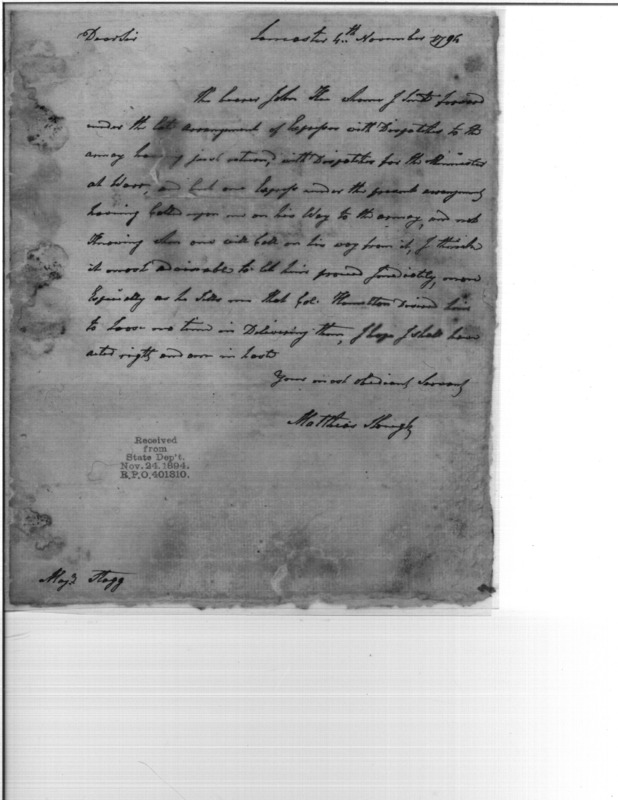 Dear Sir Lancaster 4th November 1794
the bearer John the Same I Sent forward
under the late arrangement of Expresses with Dispatches to the
army having just returned with Dispatches for the Minister
at Warr, and but one Express under the present arrangement
having Called upon me on his Way to the army, and not
Knowing when one will Call on his way from it, I think
it most adviseable to let him proceed imediately, more
Especially as he tells me that Col. Hamilton Desired him
to Loose no time in Delivering them, I hope I shall have
acted right and am in hast
Your most obedient Servant
Matthias Slough
Received
from
State Dep't.
Nov. 24, 1894.
R.P.O. 401810.
Majr. Stagg